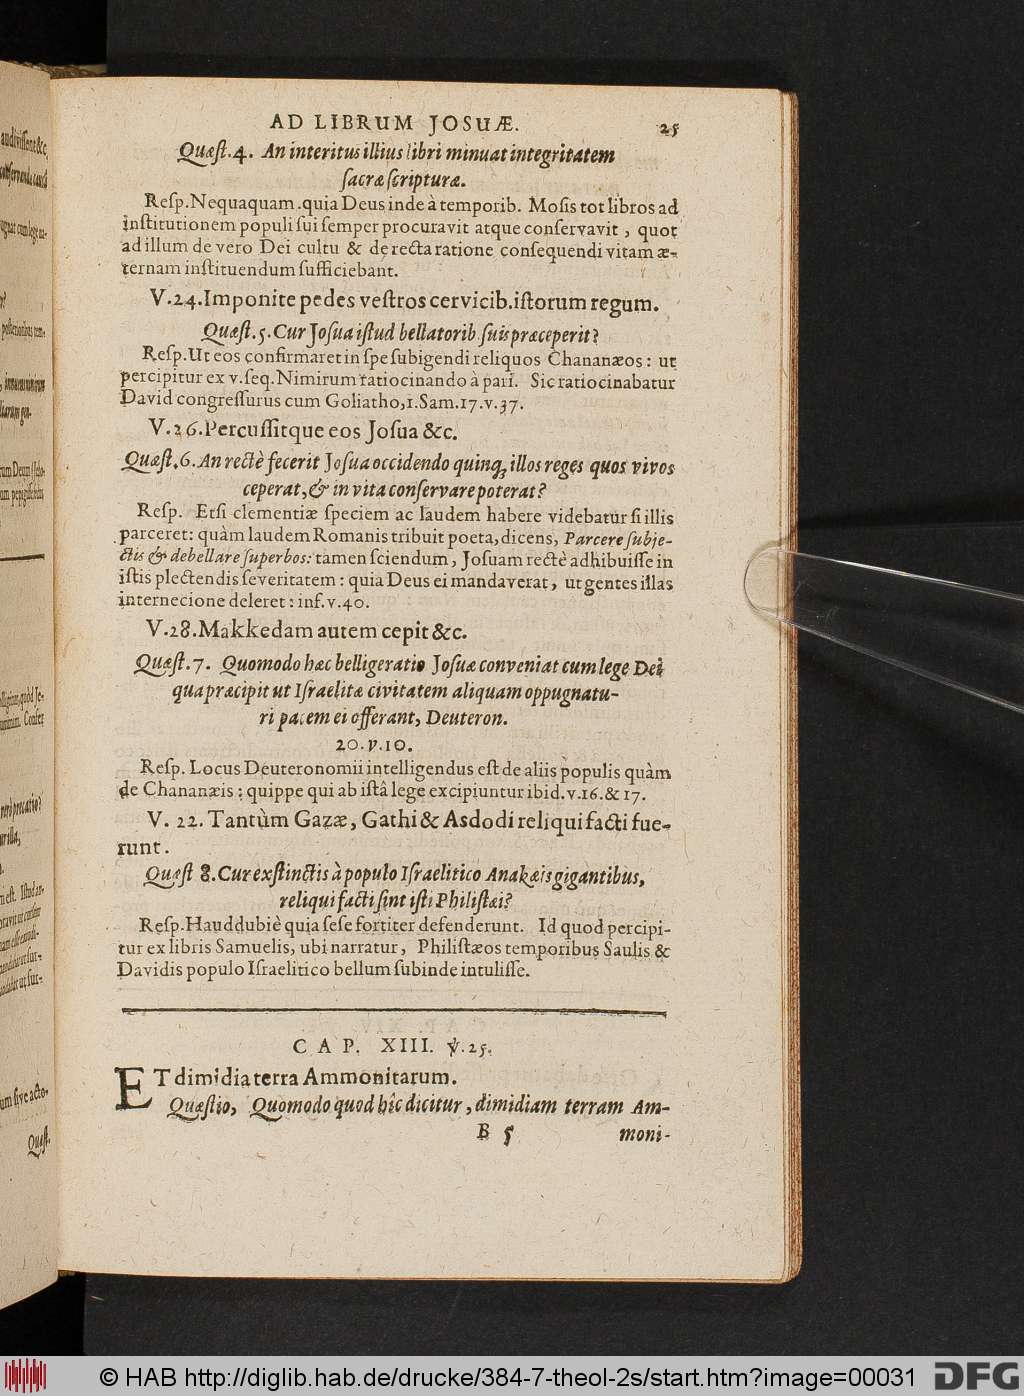 AD LIBRUM JOSUÆ. 25
Quæſt.4. An interitus illius libri minuat integritatem
ſacræ ſcripturæ.
Reſp. Nequaquam. quia Deus inde à temporib. Moſis tot libros ad
inſtitutionem populi ſui ſemper procuravit atque conſervavit, quot
ad illum de vero Dei cultu & de recta ratione conſequendi vitam æ-
ternam inſtituendum ſufficiebant.
V.24. Imponite pedes veſtros cervicib. iſtorum regum.
Quæſt.5. Cur Joſua iſtud bellatorib ſuis præceperit?
Reſp. Ut eos confirmaret in ſpe ſubigendi reliquos Chananæos: ut
percipitur ex v. ſeq. Nimirum ratiocinando à pari. Sic ratiocinabatur
David congreſſurus cum Goliatho, 1. Sam. 17. v. 37.
V.26. Percuſſitque eos Joſua &c.
Quæſt.6. An rectè fecerit Joſua occidendo quinq; illos reges quos vivos
ceperat, & in vita conſervare poterat?
Reſp. Etſi clementiæ ſpeciem ac laudem habere videbatur ſi illis
parceret: quàm laudem Romanis tribuit poeta, dicens, Parcere ſubje-
ctis & debellare ſuperbos: tamen ſciendum, Joſuam rectè adhibuiſſe in
iſtis plectendis ſeveritatem: quia Deus ei mandaverat, ut gentes illas
internecione deleret: inf. v. 40.
V.28. Makkedam autem cepit &c.
Quæſt.7. Quomodo hæc belligeratio Joſuæ conveniat cum lege Dei
qua præcipit ut Iſraelitæ civitatem aliquam oppugnatu-
ri pacem ei offerant, Deuteron.
20. v. 10.
Reſp. Locus Deuteronomii intelligendus eſt de aliis populis quàm
de Chananæis: quippe qui ab iſtâ lege excipiuntur ibid. v. 16. & 17.
V. 22. Tantùm Gazæ, Gathi & Asdodi reliqui facti fue-
runt.
Quæſt 8. Cur exſtinctis à populo Iſraelitico Anakæis gigantibus,
reliqui facti ſint iſti Philiſtæi?
Reſp. Haud dubiè quia ſeſe fortiter defenderunt. Id quod percipi-
tur ex libris Samuelis, ubi narratur, Philiſtæos temporibus Saulis &
Davidis populo Iſraelitico bellum ſubinde intuliſſe.
CAP. XIII. v. 25.
ET dimidia terra Ammonitarum.
Quæſtio, Quomodo quod hîc dicitur, dimidiam terram Am-
B 5 moni-
© HAB http://diglib.hab.de/drucke/384-7-theol-2s/start.htm?image=00031 DFG